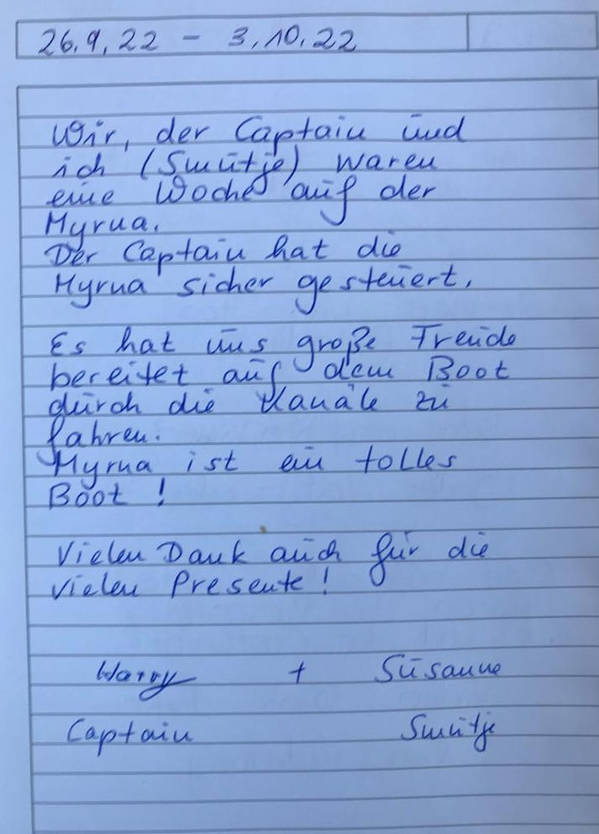 26.9.22 - 3.10.22
Wir, der Captain und
ich (Smutje) waren
eine Woche auf der
Myrna.
Der Captain hat die
Myrna sicher gesteuert.
Es hat uns große Freude
bereitet auf dem Boot
durch die Kanäle zu
fahren.
Myrna ist ein tolles
Boot!
Vielen Dank auch für die
vielen Presente!
Harry + Susanne
Captain Smutje